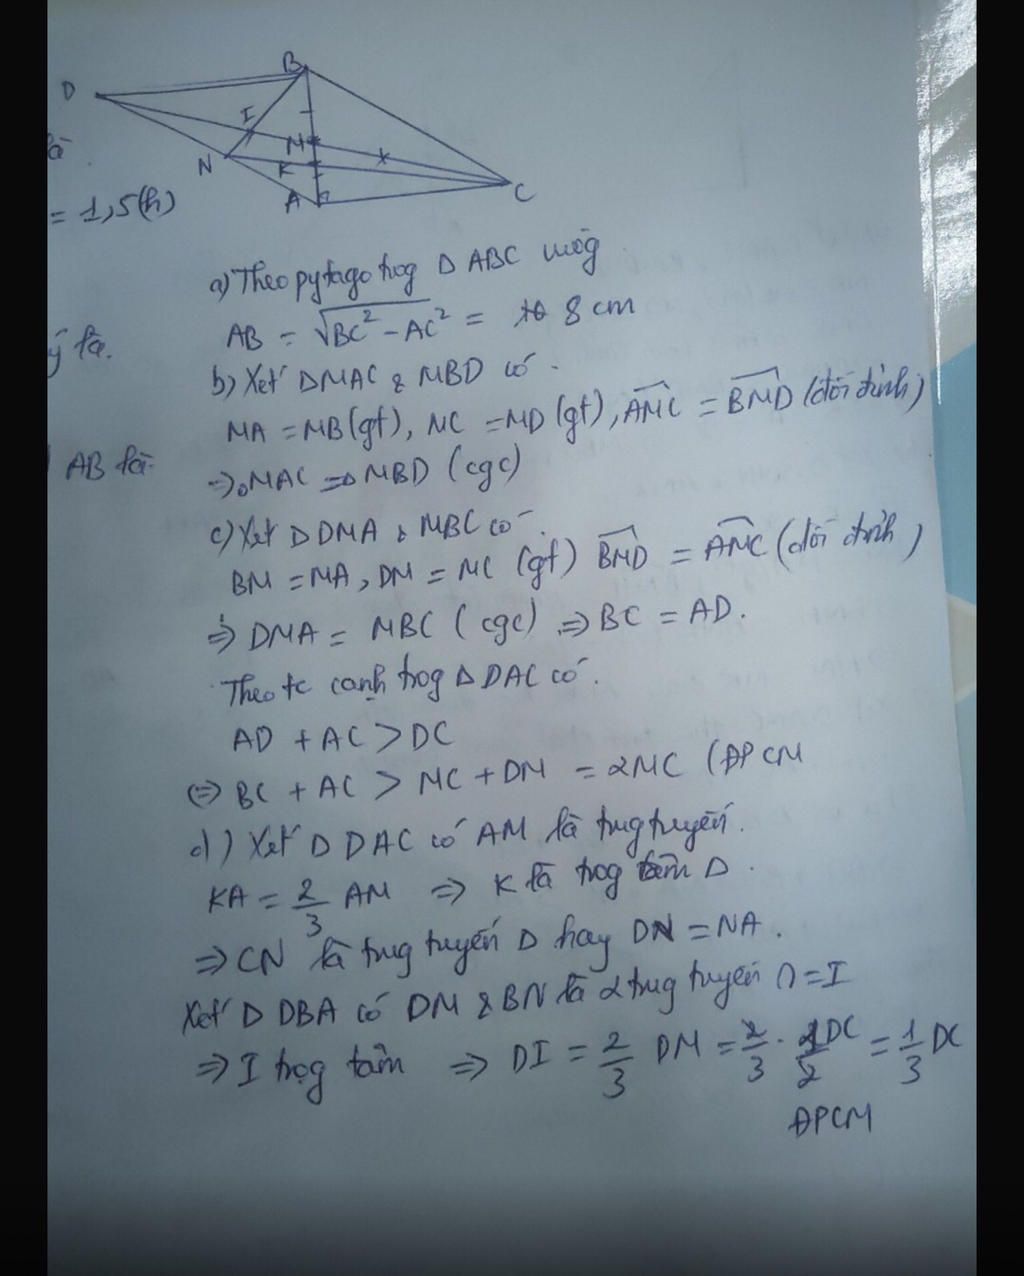 D
B
I
M
N
K
A
C
= 1,5(h)
a) Theo pytago trog Δ ABC vuôg
AB = √BC² - AC² = 8 cm
ý là.
b) Xét ΔMAC & MBD có
MA = MB (gt), MC = MD (gt), AMC = BMD (đối đỉnh)
AB là
=> ΔMAC = Δ MBD (cgc)
c) Xét Δ DMA & MBC có
BM = MA, DM = MC (gt) BMD = AMC (đối đỉnh)
=> DMA = MBC (cgc) => BC = AD.
Theo tc cạnh trog Δ DAC có.
AD + AC > DC
<=> BC + AC > MC + DM = 2MC (ĐPCM
d) Xét Δ DAC có AM là trug tuyến.
KA = 2/3 AM => K là trog tâm Δ.
=> CN là trug tuyến Δ hay DN = NA.
Xét Δ DBA có DM & BN là 2 trug tuyến ∩ = I
=> I trọg tâm => DI = 2/3 DM = 2/3 . 1DC/2 = 1/3 DC
ĐPCM